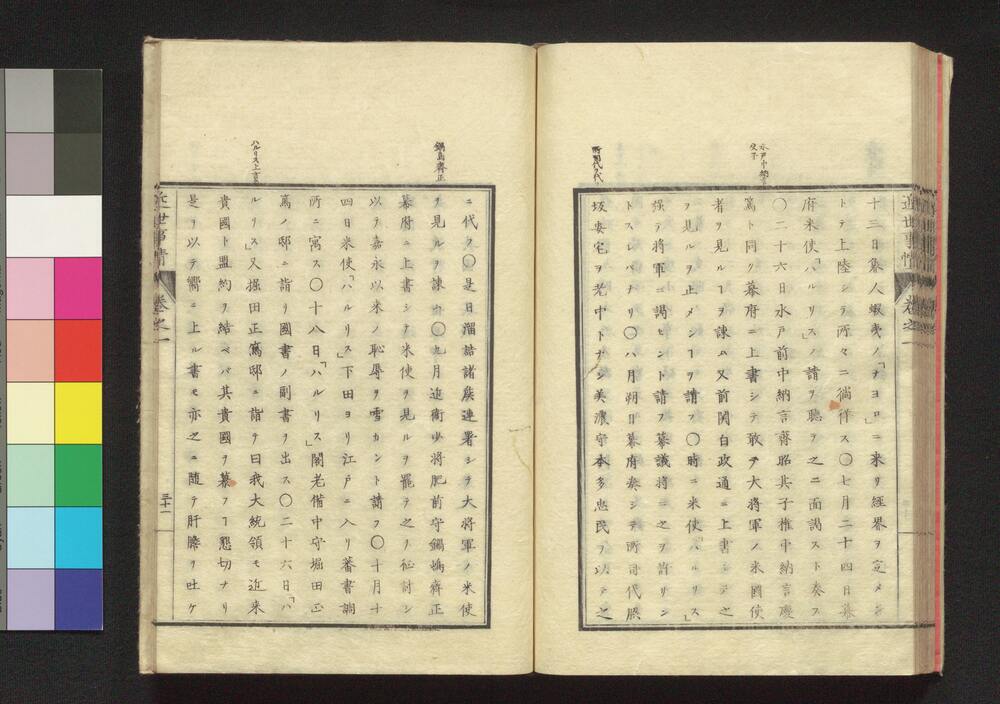 近世事情 巻之一
十三日魯人蝦夷ノ「ナヨロ」ニ来リ経界ヲ定メン
トテ上陸シテ所々ニ徜徉ス〇七月二十四日幕
府米使「ハルリス」ノ請ヲ聴ヲ之ニ面謁スト奏ス
〇二十六日水戸前中納言齊昭其子権中納言慶
篤ト同ク幕府ニ上書シテ敢テ大将軍ノ米國使
者ヲ見ルヿヲ諫ム又前関白政通ニ上書シテ之
ヲ見ルヲ止メンヿヲ請フ〇時ニ米使「ハルリス」
強テ将軍ニ謁センヿヲ請フ幕議将ニ之ヲ許サン
トスレバナリ〇八月朔日幕府奏シテ所司代脇
坂安宅ヲ老中トナシ美濃守本多忠民ヲ以テ之
水戸中納言父子
所司代代
ニ代フ〇是日溜詰諸侯連署シテ大将軍ノ米使
ヲ見ルヲ諫ム〇九月近衛少将肥前守鍋嶋齊正
幕府ニ上書シテ米使ヲ見ルヲ罷テ之ヲ征討シ
以テ嘉永以来ノ恥辱ヲ雪カント請フ〇十月十
四日米使「ハルリス」下田ヨリ江戸ニ入リ蕃書調
所ニ寓ス〇十八日「ハルリス」閣老備中守堀田正
篤ノ邸ニ詣リ國書ノ副書ヲ出ス〇二十六日「ハ
ルリス」又堀田正篤邸ニ詣テ曰我大統領モ近来
貴國ト盟約ヲ結ベバ其貴國ヲ慕フヿ懇切ナリ
是ヲ以テ嚮ニ上ル書モ亦之ニ随テ肝膽ヲ吐ケ
鍋島齊正
ハルリス上言
近世事情 巻之一
三十一